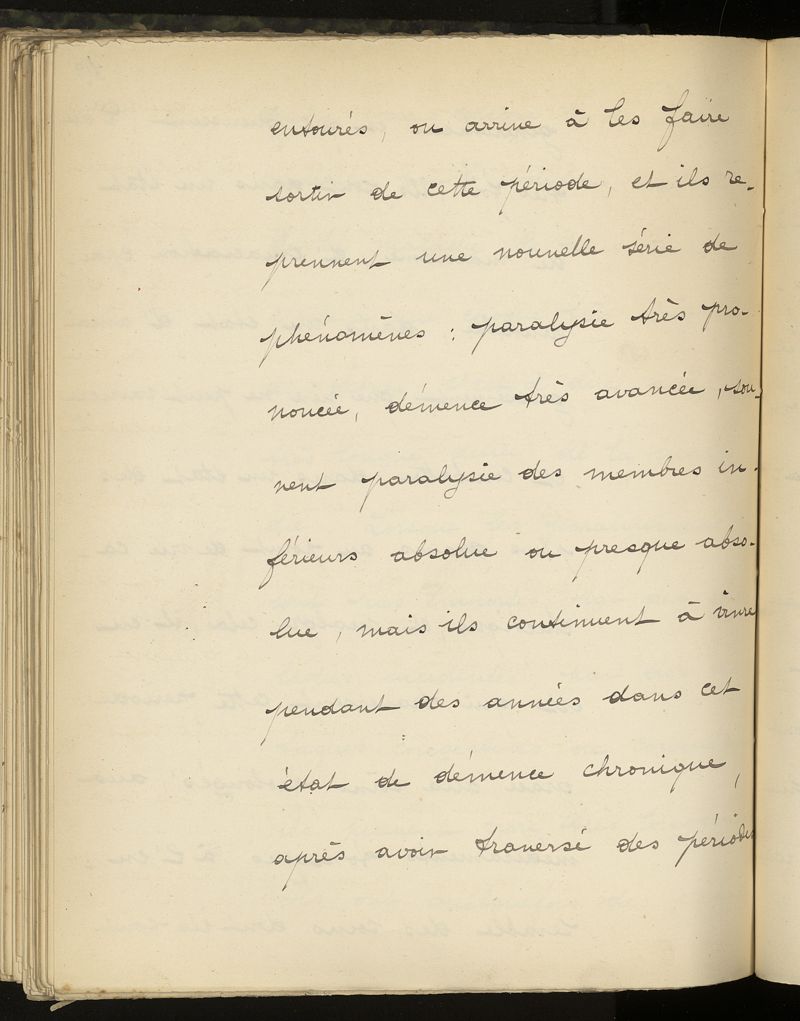 entourés, on arrive à les faire
sortir de cette période, et ils re-
prennent une nouvelle série de
phénomènes : paralysie très pro-
noncée, démence très avancée, sou-
vent paralysie des membres in-
férieurs absolue ou presque abso-
lue, mais ils continuent à vivre
pendant des années dans cet
état de démence chronique,
après avoir traversé des périodes